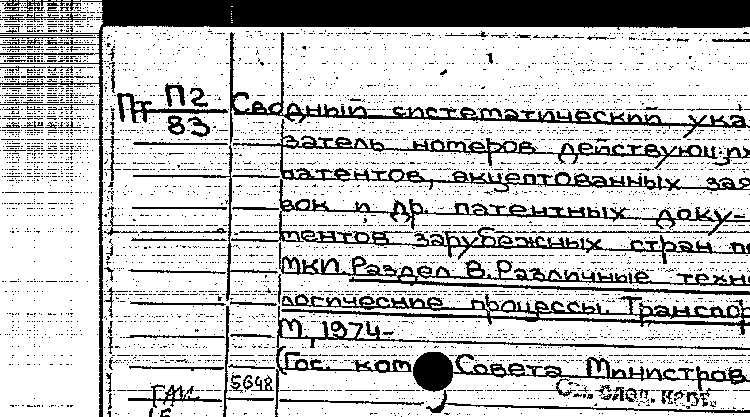 Пт П2/83 Сводный систематический ука
затель номеров действующих
патентов, акцептованных зая
вок и др. патентных доку-
ментов зарубежных стран по
МКИ. Раздел В. Различные техно
логические процессы. Транспор
М., 1974-
(Гос. ком Совета Министров
5648
См. след. карт.